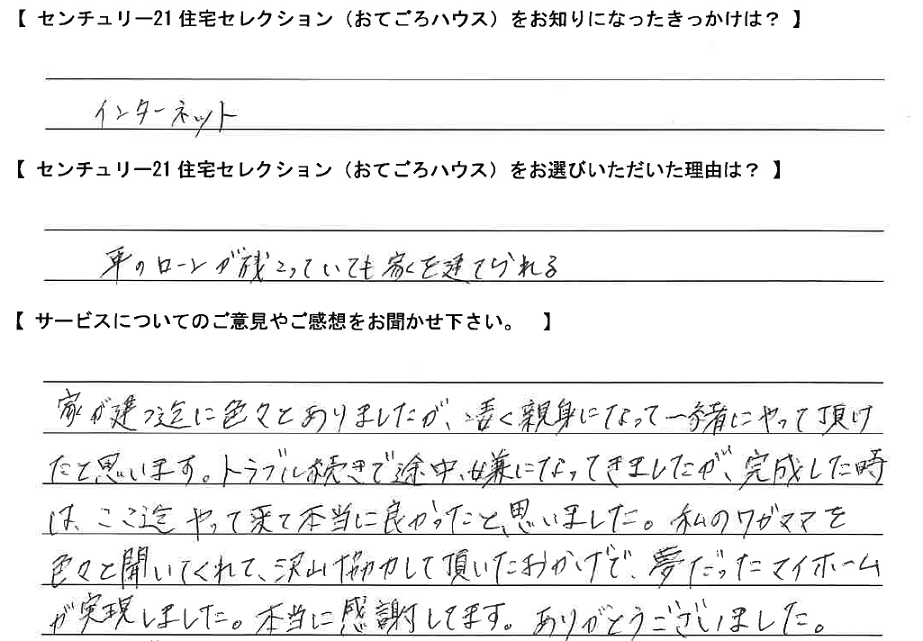 【 センチュリー21 住宅セレクション（おてごろハウス）をお知りになったきっかけは？ 】
インターネット
【 センチュリー21 住宅セレクション（おてごろハウス）をお選びいただいた理由は？ 】
車のローンが残っていても家を建てられる
【 サービスについてのご意見やご感想をお聞かせ下さい。 】
家が建つ迄に色々とありましたが、凄く親身になって一緒にやって頂け
たと思います。トラブル続きで途中、嫌になってきましたが、完成した時
は、ここ迄やって来て本当に良かったと、思いました。私のワガママを
色々と聞いてくれて、沢山協力して頂いたおかげで、夢だったマイホーム
が実現しました。本当に感謝してます。ありがとうございました。